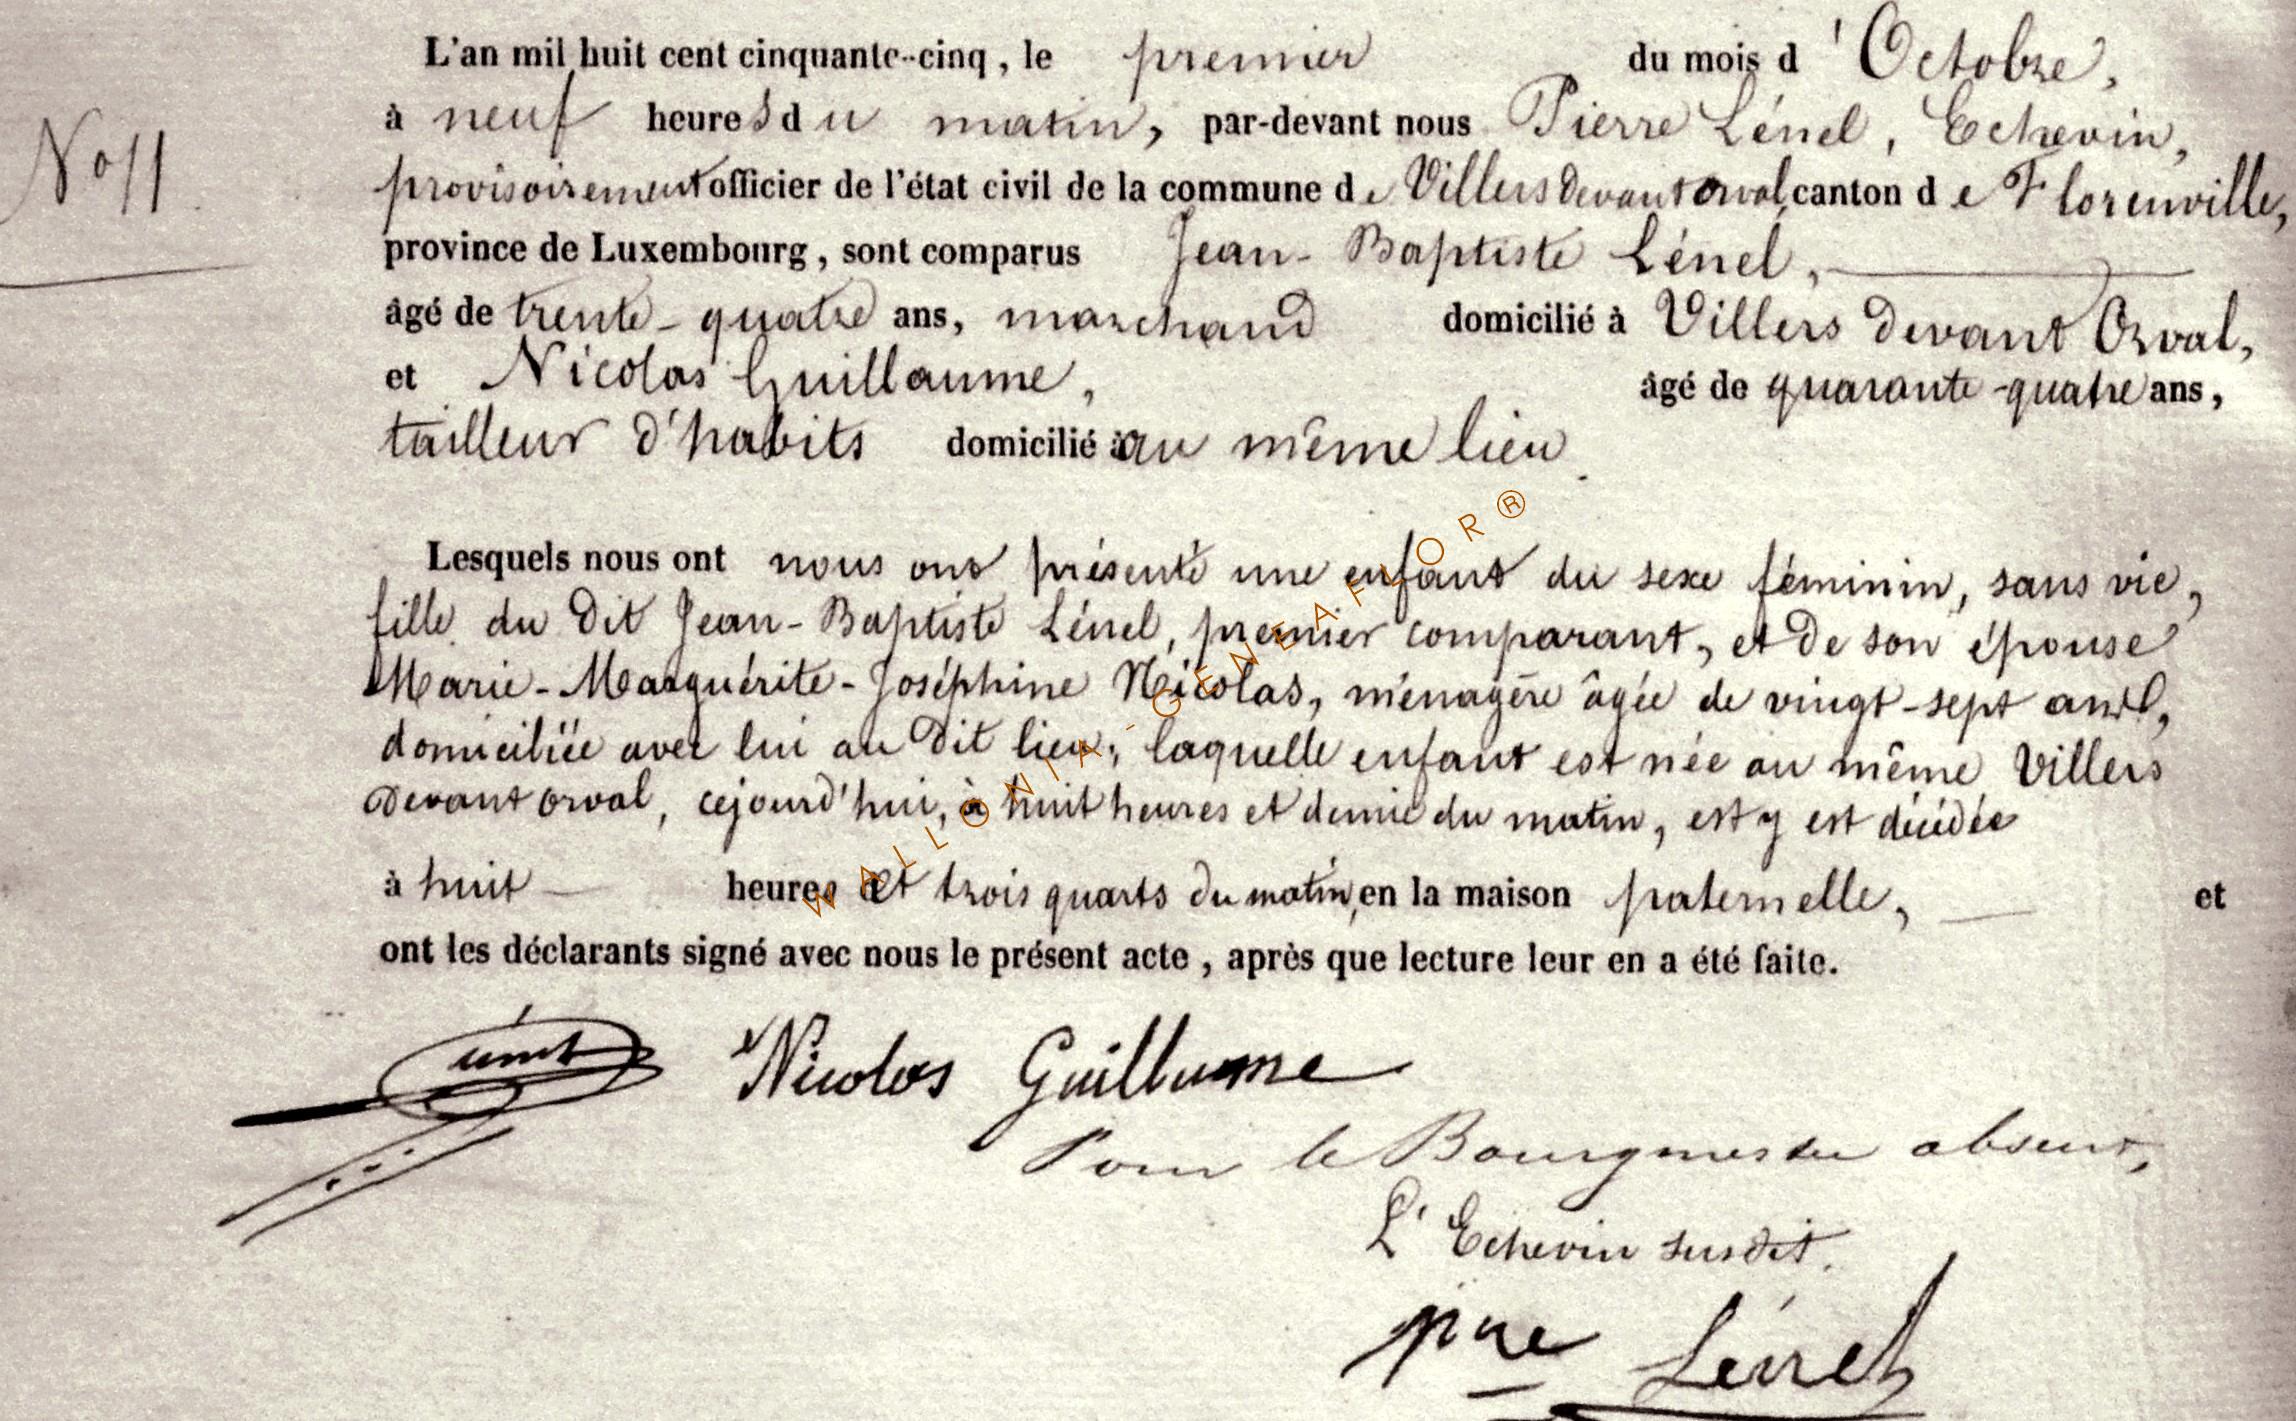 L'an mil huit cent cinquante-cinq, le premier du mois d'Octobre,
à neuf heures du matin, par-devant nous Pierre Lénel, Echevin,
N° 11
provisoirement officier de l'état civil de la commune de Villers devant orval, canton de Florenville,
province de Luxembourg, sont comparus Jean-Baptiste Lénel,
âgé de trente-quatre ans, marchand domicilié à Villers devant Orval,
et Nicolas Guillaume, âgé de quarante-quatre ans,
tailleur d'habits domicilié au même lieu.
Lesquels nous ont nous ont présenté une enfant du sexe féminin, sans vie,
fille du dit Jean-Baptiste Lénel, premier comparant, et de son épouse
Marie-Marguérite-Joséphine Nicolas, ménagère âgée de vingt-sept ans,
domiciliée avec lui au dit lieu; laquelle enfant est née au même Villers
devant orval, cejourd'hui, à huit heures et demie du matin, est y est décédée
à huit heures et trois quarts du matin, en la maison paternelle, et
ont les déclarants signé avec nous le présent acte, après que lecture leur en a été faite.
Nicolas Guillaume
Pour le Bourgmestre absent,
L'Echevin susdit.
pre Lénel
WALLONIA-GENEAFLOR®